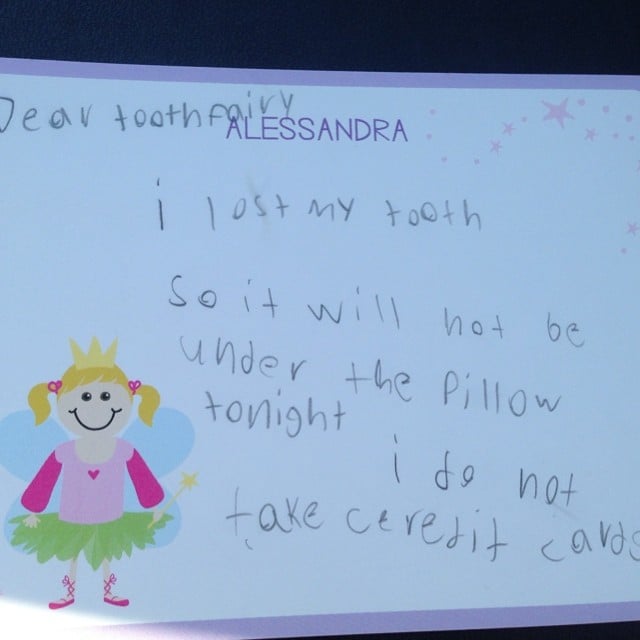 Dear toothfairy
ALESSANDRA
i lost my tooth
so it will not be
under the pillow
tonight
i do not
take ceredit cards